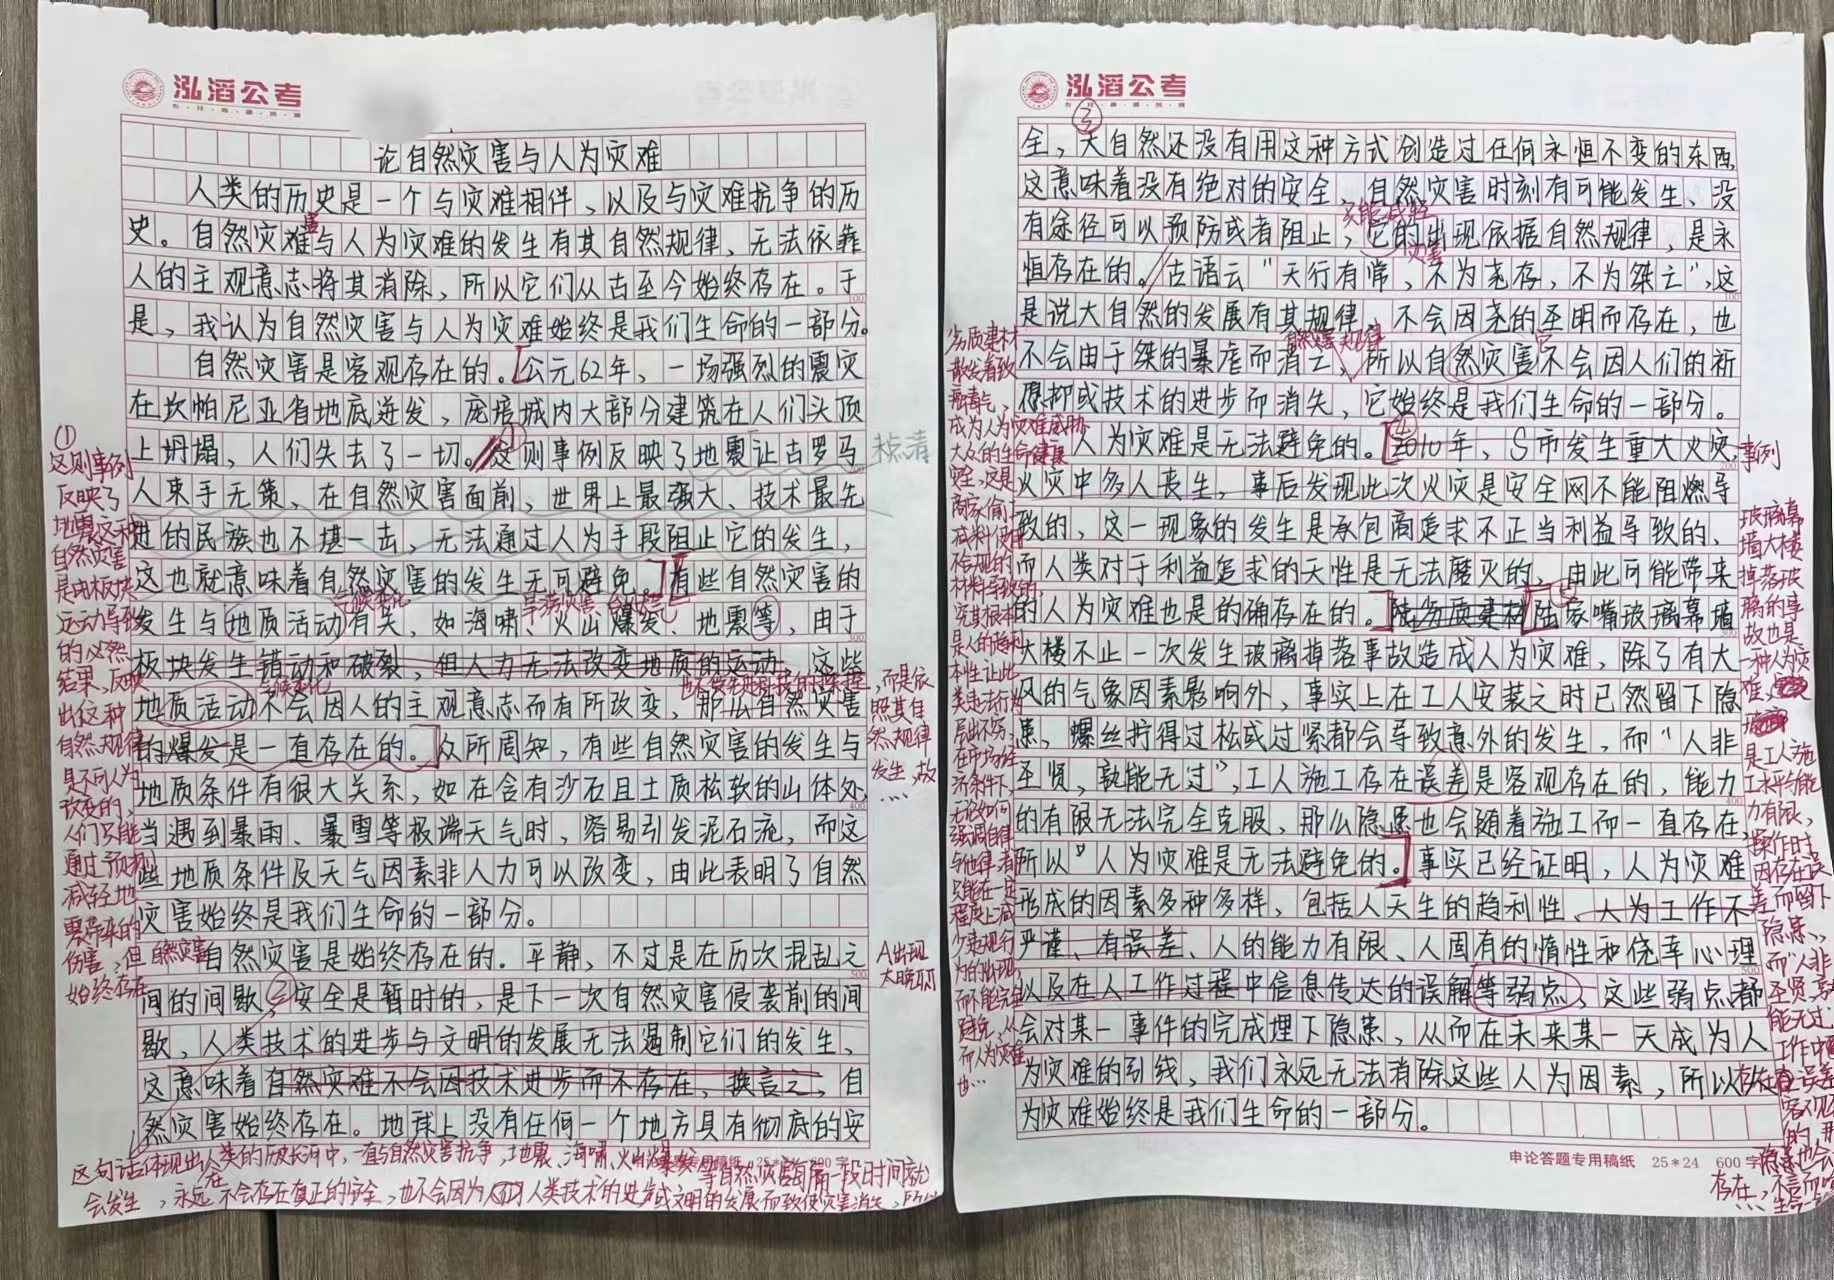 泓滔公考
论自然灾害与人为灾难
人类的历史是一个与灾难相伴、以及与灾难抗争的历
史。自然灾难与人为灾难的发生有其自然规律、无法依靠
害
人的主观意志将其消除，所以它们从古至今始终存在。于
是，我认为自然灾害与人为灾难始终是我们生命的一部分。
自然灾害是客观存在的。公元62年，一场强烈的震灾
在坎帕尼亚省地底迸发，庞培城内大部分建筑在人们头顶
上坍塌，人们失去了一切。这则事例反映了地震让古罗马
人束手无策、在自然灾害面前，世界上最强大、技术最先
进的民族也不堪一击，无法通过人为手段阻止它的发生，
这也就意味着自然灾害的发生无可避免。有些自然灾害的
发生与地质活动有关，如海啸、火山爆发、地震等，由于
板块发生错动和破裂，但人力无法改变地质的运动，这些
地质活动不会因人的主观意志而有所改变，那么自然灾害
的爆发是一直存在的。众所周知，有些自然灾害的发生与
地质条件有很大关系，如在含有沙石且土质松软的山体处，
当遇到暴雨、暴雪等极端天气时，容易引发泥石流，而这
些地质条件及天气因素非人力可以改变，由此表明了自然
灾害始终是我们生命的一部分。
自然灾害是始终存在的。平静，不过是在历次混乱之
间的间歇，安全是暂时的，是下一次自然灾害侵袭前的间
歇，人类技术的进步与文明的发展无法遏制它们的发生，
这意味着自然灾难不会因技术进步而不存在，换言之，自
然灾害始终存在。地球上没有任何一个地方具有彻底的安
①
这则事例
反映了
地震这种
自然灾害
是由板块
运动导致
的必然
结果，反映
出这种
自然规律
是不可人为
改变的，
人们只能
通过预报
减轻地
震带来的
伤害，但
自然灾害
始终存在
气候变化
气候变化
，而是依
照其自
然规律
发生，故
……
A出现
太晚
这句话体现出在人类的历史长河中，一直与自然灾害抗争，地震、海啸、火山爆发等自然灾害每隔一段时间就
会发生，永远不会存在真正的安全，也不会因为人类技术的进步或文明的发展而致使灾害消失，所以
泓滔公考
全，大自然还没有用这种方式创造过任何永恒不变的东西，
这意味着没有绝对的安全，自然灾害时刻有可能发生、没
有途径可以预防或者阻止，它的出现依据自然规律，是永
只能减轻
灾害
恒存在的。古语云“天行有常，不为尧存，不为桀亡”，这
是说大自然的发展有其规律，不会因尧的圣明而存在，也
不会由于桀的暴虐而消亡，所以自然灾害不会因人们的祈
自然灾害规律
愿抑或技术的进步而消失，它始终是我们生命的一部分。
人为灾难是无法避免的。2010年，S市发生重大火灾，
火灾中多人丧生，事后发现此次火灾是安全网不能阻燃导
致的，这一现象的发生是承包商追求不正当利益导致的，
而人类对于利益追求的天性是无法磨灭的，由此可能带来
的人为灾难也是的确存在的。陆家嘴玻璃幕墙
大楼不止一次发生玻璃掉落事故造成人为灾难，除了有大
风的气象因素影响外，事实上在工人安装之时已然留下隐
患，螺丝拧得过松或过紧都会导致意外的发生，而“人非
圣贤，孰能无过”，工人施工存在误差是客观存在的，能力
的有限无法完全克服，那么隐患也会随着施工而一直存在，
所以“人为灾难是无法避免的。事实已经证明，人为灾难
形成的因素多种多样，包括人天生的趋利性、人为工作不
严谨、有误差、人的能力有限、人固有的惰性和侥幸心理
以及在人工作过程中信息传达的误解等弱点，这些弱点都
会对某一事件的完成埋下隐患，从而在未来某一天成为人
为灾难的引线，我们永远无法消除这些人为因素，所以
为灾难始终是我们生命的一部分。
劣质建材
散发着致
癌毒气，
成为人为灾难威胁
大众的生命健康
安全，这是
商家偷工
减料使用
不合规的
材料导致的，
究其根本
是人的趋利
本性让此
类违法行为
层出不穷，
在市场经
济条件下，
无论如何
强调自律
与他律，者
只能在一定
程度上减
少违规行
为的出现，
而不能完全
避免，从
而人为灾难
也……
事例
玻璃幕
墙大楼
掉落玻
璃的事
故也是
一种人为灾
难，
是工人施
工水平与能
力有限，
操作时
因存在误
差而留下
隐患，
而“人非
圣贤，孰
能无过”
工作中
存在误差
的，那
隐患也会
存在，
申论答题专用稿纸 25*24 600字